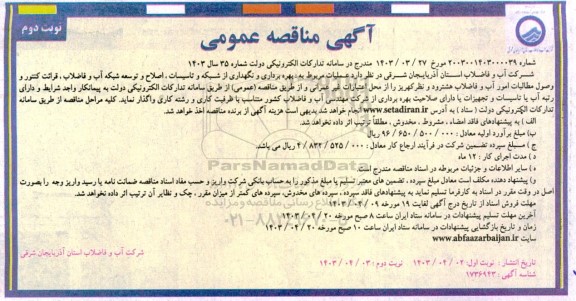 آگهی مناقصه عمومی
نوبت دوم
شماره ۲۰۰۳۰۰۱۴۰۳۰۰۰۰۳۹ مورخ ۲۷ / ۰۳ / ۱۴۰۳ مندرج در سامانه تدارکات الکترونیکی دولت شماره ۳۵ سال ۱۴۰۳
شرکت آب و فاضلاب استان آذربایجان شرقی در نظر دارد عملیات مربوط به بهره برداری و نگهداری از شبکه و تاسیسات ، اصلاح و توسعه شبکه آب و فاضلاب ، قرائت کنتور و
وصول مطالبات امور آب و فاضلاب هشترود و نظرکهریز را از محل اعتبارات عمرانی و از طریق مناقصه (عمومی) از طریق سامانه تدارکات الکترونیکی دولت به پیمانکار واجد شرایط و دارای
رتبه آب یا تاسیسات و تجهیزات یا دارای صلاحیت بهره برداری از شرکت مهندسی آب و فاضلاب کشور متناسب با ظرفیت کاری و رشته کاری واگذار نماید. کلیه مراحل مناقصه از طریق سامانه
تدارکات الکترونیکی دولت ( ستاد ) به آدرس www.setadiran.ir انجام خواهد شد بدیهی است هزینه آگهی از برنده مناقصه اخذ خواهد شد.
الف ) به پیشنهادهای فاقد امضاء ، مشروط ، مخدوش ، مطلقاً ترتیب اثر داده نخواهد شد.
ب) مبلغ برآورد اولیه معادل : ۰۰۰ / ۵۰۰ / ۶۵۰ / ۹۶ ریال
ج ) مسبلغ سپرده تضمین شرکت در فرآیند ارجاع کار معادل : ۰۰۰ / ۵۲۵ / ۸۳۲ / ۴ ریال می باشد.
د ) مدت اجرای کار : ۱۲ ماه
ه ) سایر اطلاعات و جزئیات مربوطه در اسناد مناقصه مندرج است.
و ) پیشنهاد دهنده مکلف است معادل مبلغ سپرده ، تضمین های معتبر تسلیم یا مبلغ مذکور را به حساب بانکی شرکت واریز و حسب مفاد اسناد مناقصه ضمانت نامه یا رسید واریز وجه را بصورت
اصل در وقت مقرر در اسناد به کارفرما تسلیم نماید به پیشنهادهای فاقد سپرده ، سپرده های مخدوش، سپرده های کمتر از میزان مقرر، چک و نظایر آن ترتیب اثر داده نخواهد شد.
مهلت فروش اسناد از تاریخ درج آگهی لغایت ۱۹ مورخه ۰۹ / ۰۴ / ۱۴۰۳
آخرین مهلت تسلیم پیشنهادات در سامانه ستاد ایران ساعت ۸ صبح مورخه ۲۰ / ۰۴ / ۱۴۰۳
زمان و تاریخ بازگشایی پیشنهادات در سامانه ستاد ایران ساعت ۱۰ صبح مورخه ۲۰ / ۰۴ / ۱۴۰۳
سایت www.abfaazarbaijan.ir
شرکت آب و فاضلاب استان آذربایجان شرقی
تاریخ انتشار : نوبت اول: ۰۲ / ۰۴ / ۱۴۰۳ نوبت دوم : ۰۳ / ۰۴ / ۱۴۰۳
شناسه آگهی : ۱۷۳۶۹۴۳
ParsNamadData